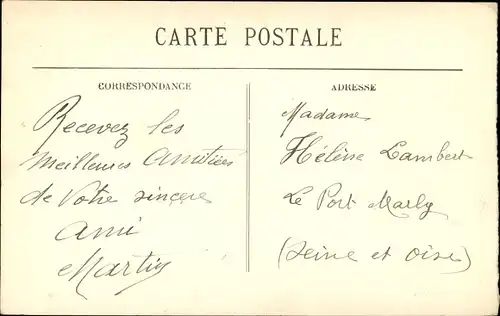 CARTE POSTALE
CORRESPONDANCE
Recevez les
meilleures amitiés
de Votre sincere
Ami
Martin
ADRESSE
Madame
Hélène Lambert
Le Port Marly
(Seine et Oise)